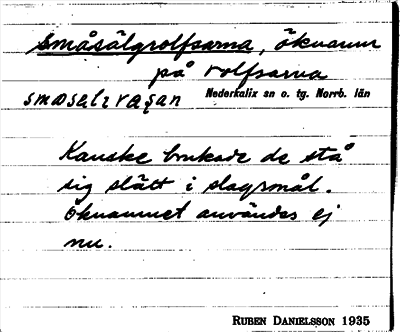 Småsälgrolfsarna, öknamn
på rolfsarna
Nederkalix sn o. tg. Norrb. län
Kanske brukade de stå
sig slätt i slagsmål.
Öknamnet användes ej
nu.
RUBEN DANIELSSON 1935